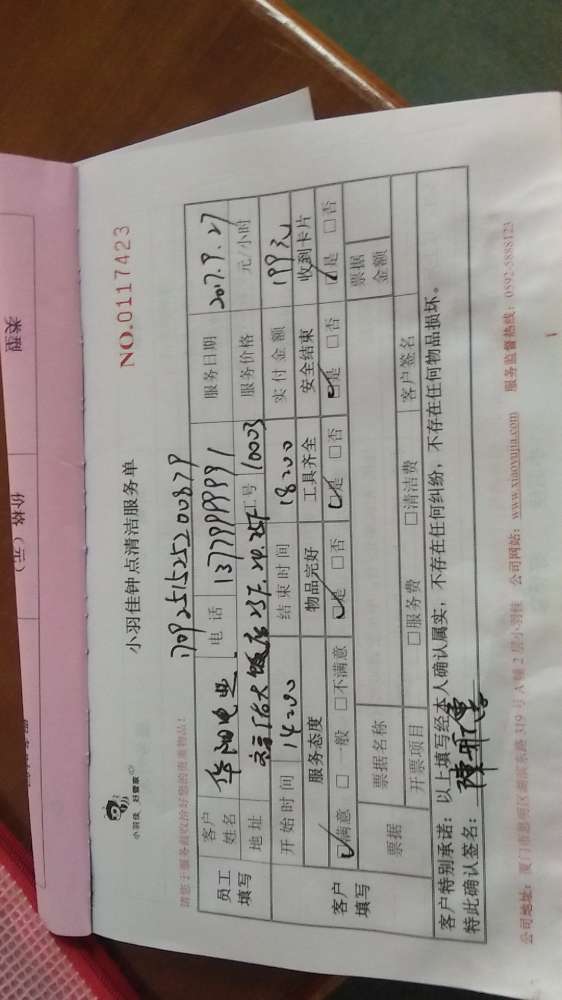 类型
价格（元）
小羽佳 好管家
小羽佳钟点清洁服务单
NO.0117423
请您于服务前收洽好您的贵重物品！
170925152520087９
员工填写
客户姓名 华阳电业
电话 13779999991
服务日期 2017.9.27
地址 大饭店23F.24.25F
工号 10003
服务价格 元/小时
开始时间 14:00
结束时间 18:00
实付金额 199元
客户填写
服务态度 物品完好 工具齐全 安全结束 收到卡片
☑满意 □一般 □不满意 ☑是 □否 ☑是 □否 ☑是 □否 ☑是 □否
票据 票据名称 票据金额
开票项目 □服务费 □清洁费 客户签名
客户特别承诺：以上填写经本人确认属实，不存在任何纠纷，不存在任何物品损坏。
特此确认签名：
公司地址：厦门市思明区湖滨东路319号A幢2层小羽佳 公司网站：www.xiaoyujia.com 服务监督热线：0592-5888123
1